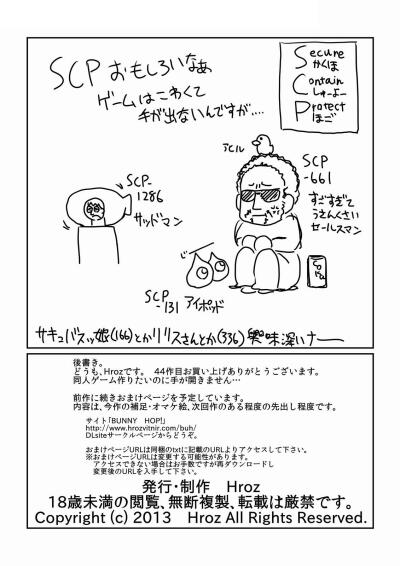 SCPおもしろいなぁ
ゲームはこわくて
手が出ないんですが....
Secure
かくほ
Contain
しゅーよー
Protect
ほご
アヒル
SCP
-1286
サッドマン
SCP
-661
すごすぎて
うさんくさい
セールスマン
SCP
-131 アイポッド
サキュバスッ娘(166)とかリリスさんとか(336)興味深いナー
後書き。
どうも、Hrozです。 44作目お買い上げありがとうございます。
同人ゲーム作りたいのに手が開きません…
前作に続きおまけページを予定しています。
内容は、今作の補足・オマケ絵、次回作のある程度の先出し程度です。
サイト「BUNNY HOP!」
http://www.hrozvitnir.com/buh/
DLsiteサークルページからどうぞ。
おまけページURLは同梱のtxtに記載のURLよりアクセスして下さい。
※おまけページURLは変更する可能性があります。
アクセスできない場合はお手数ですが再ダウンロードし
変更後のURLを入手して下さい。
発行・制作 Hroz
18歳未満の閲覧、無断複製、転載は厳禁です。
Copyright (c) 2013 Hroz All Rights Reserved.